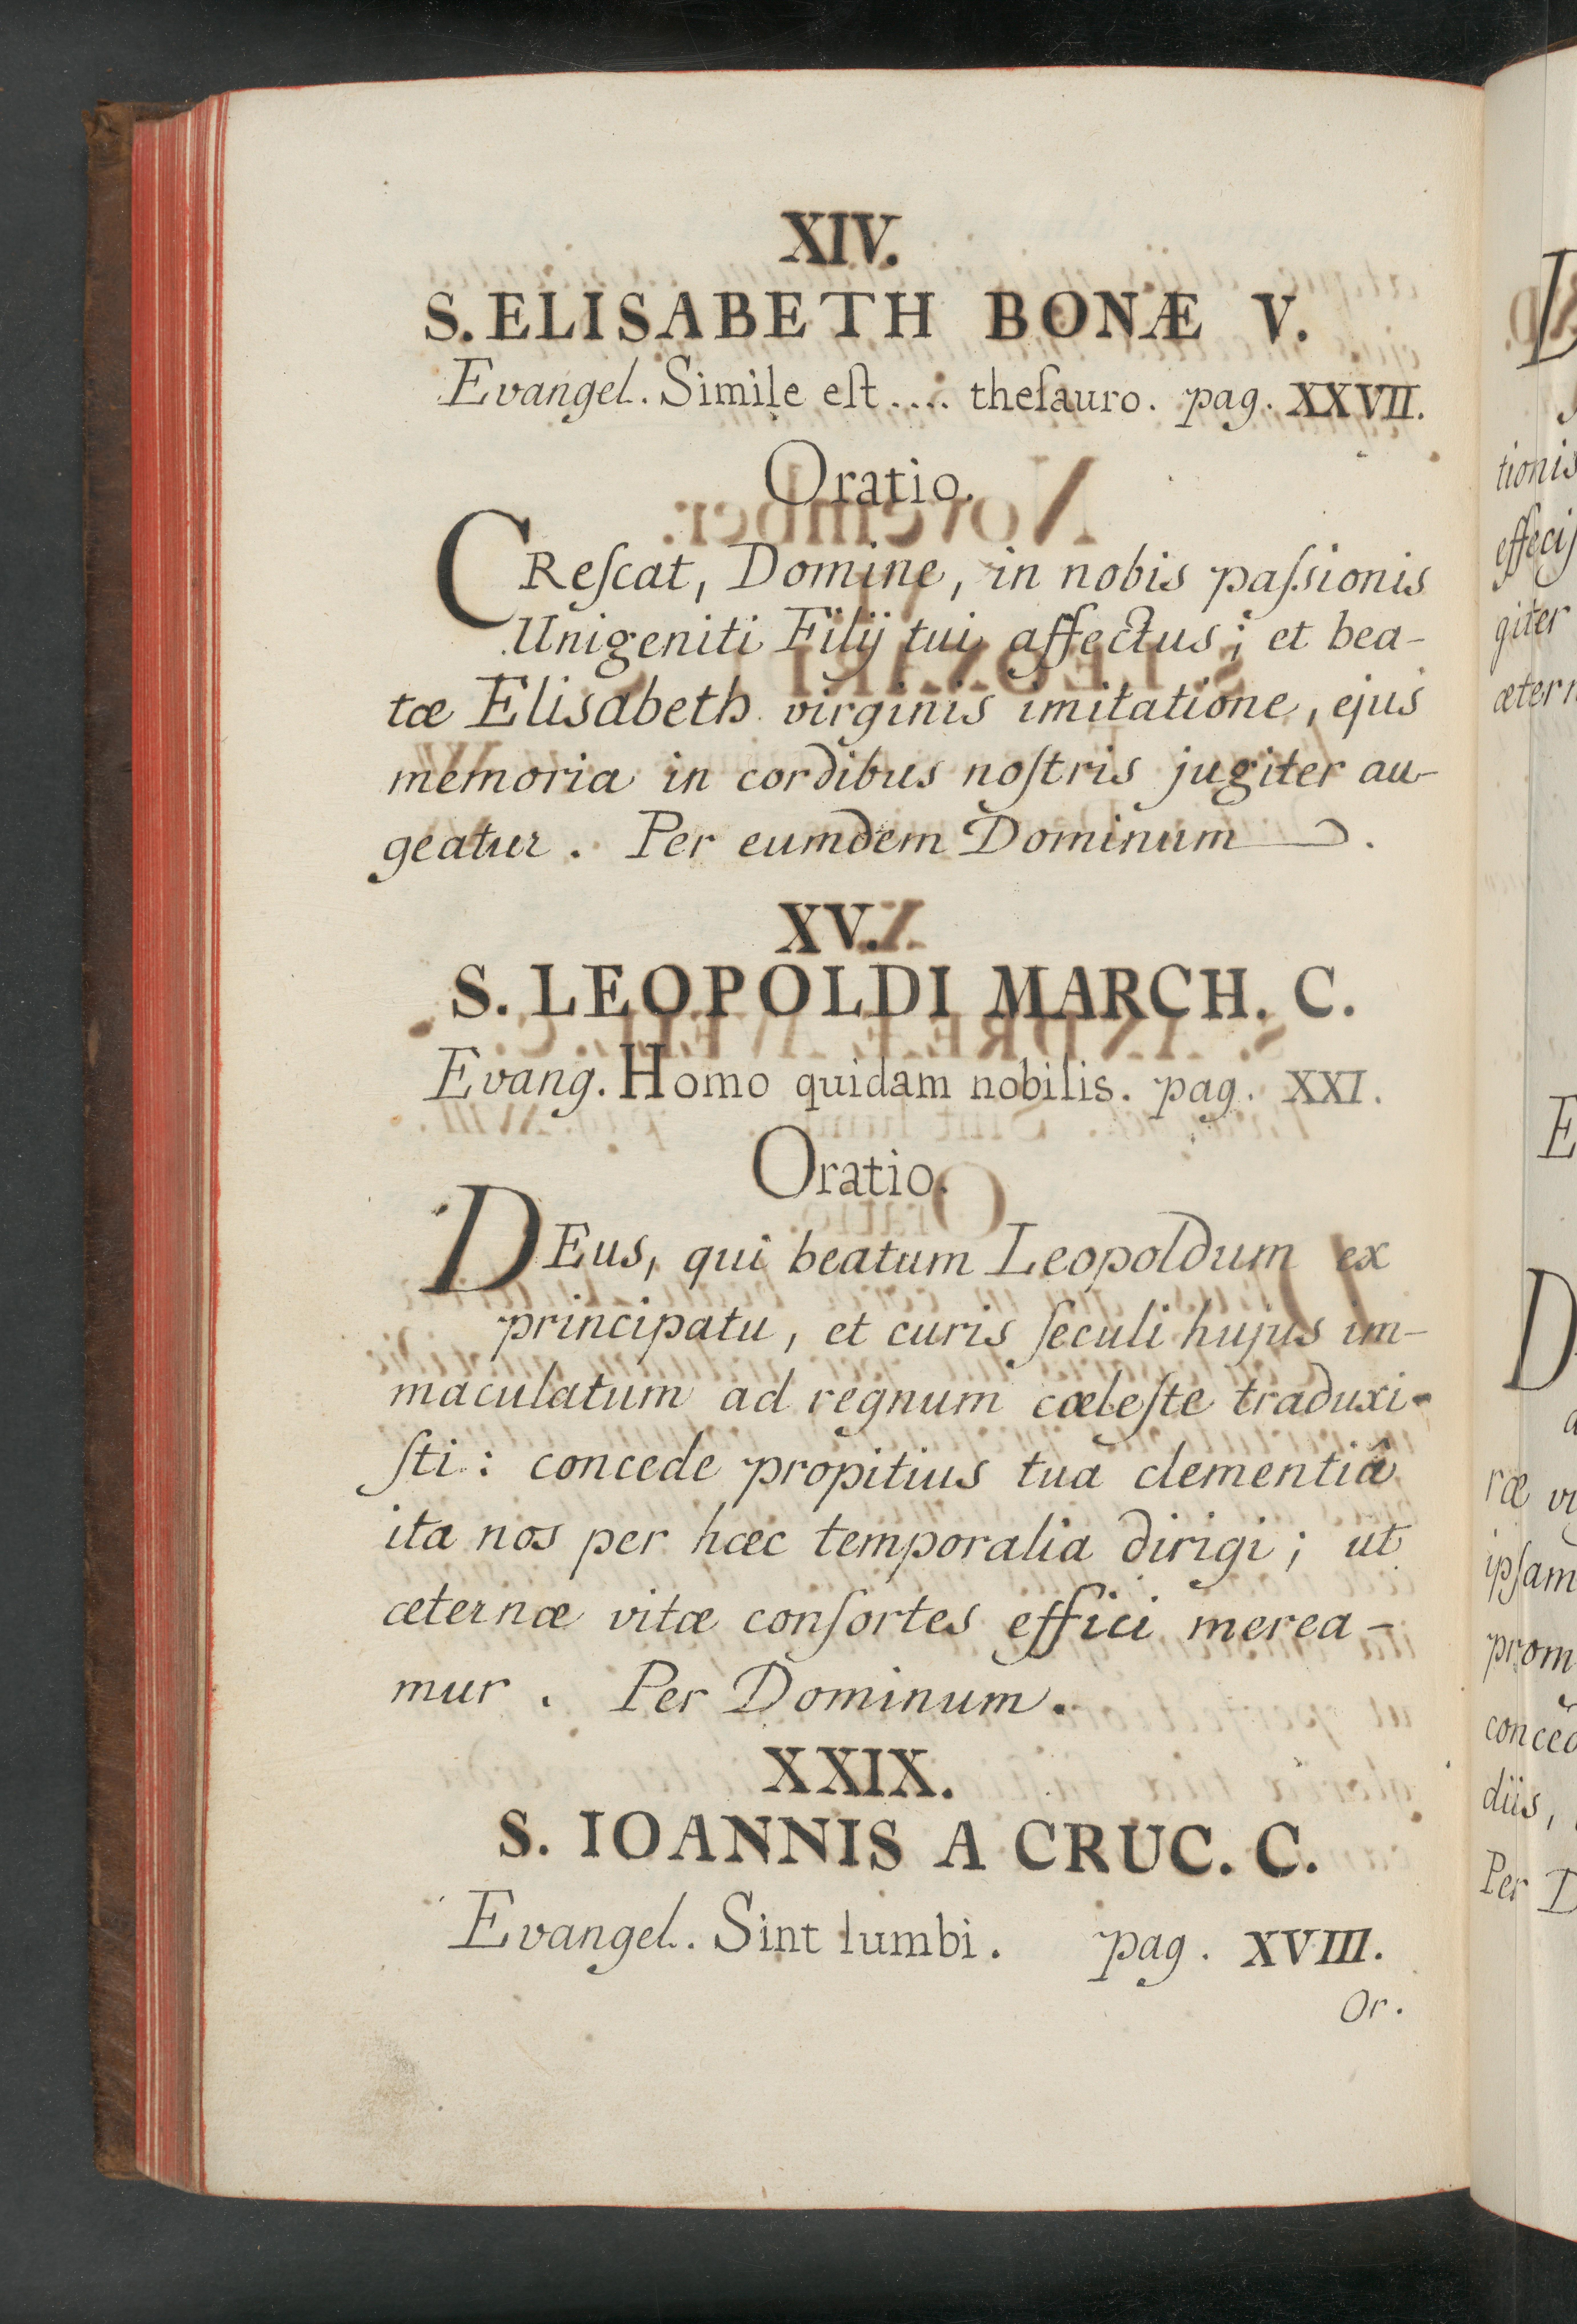 XIV.
S. ELISABETH BONÆ V.
Evangel. Simile eſt.... theſauro. pag. XXVII.
Oratio.
CReſcat, Domine, in nobis paſsionis
Unigeniti Filij tui affectus; et bea-
tæ Elisabeth virginis imitatione, ejus
memoria in cordibus noſtris jugiter au-
geatur. Per eumdem Dominum.
XV.
S. LEOPOLDI MARCH. C.
Evang. Homo quidam nobilis. pag. XXI.
Oratio.
DEus, qui beatum Leopoldum ex
principatu, et curis ſeculi hujus im-
maculatum ad regnum cœleſte traduxi-
ſti: concede propitius tua clementiâ
ita nos per hæc temporalia dirigi; ut
æternæ vitæ conſortes effici merea-
mur. Per Dominum.
XXIX.
S. IOANNIS A CRUC. C.
Evangel. Sint lumbi. pag. XVIII.
Or.
D
tionis
effeciſ
giter
ætern
E
D
a
ræ vi
ipſam
prom
conced
diis,
Per D